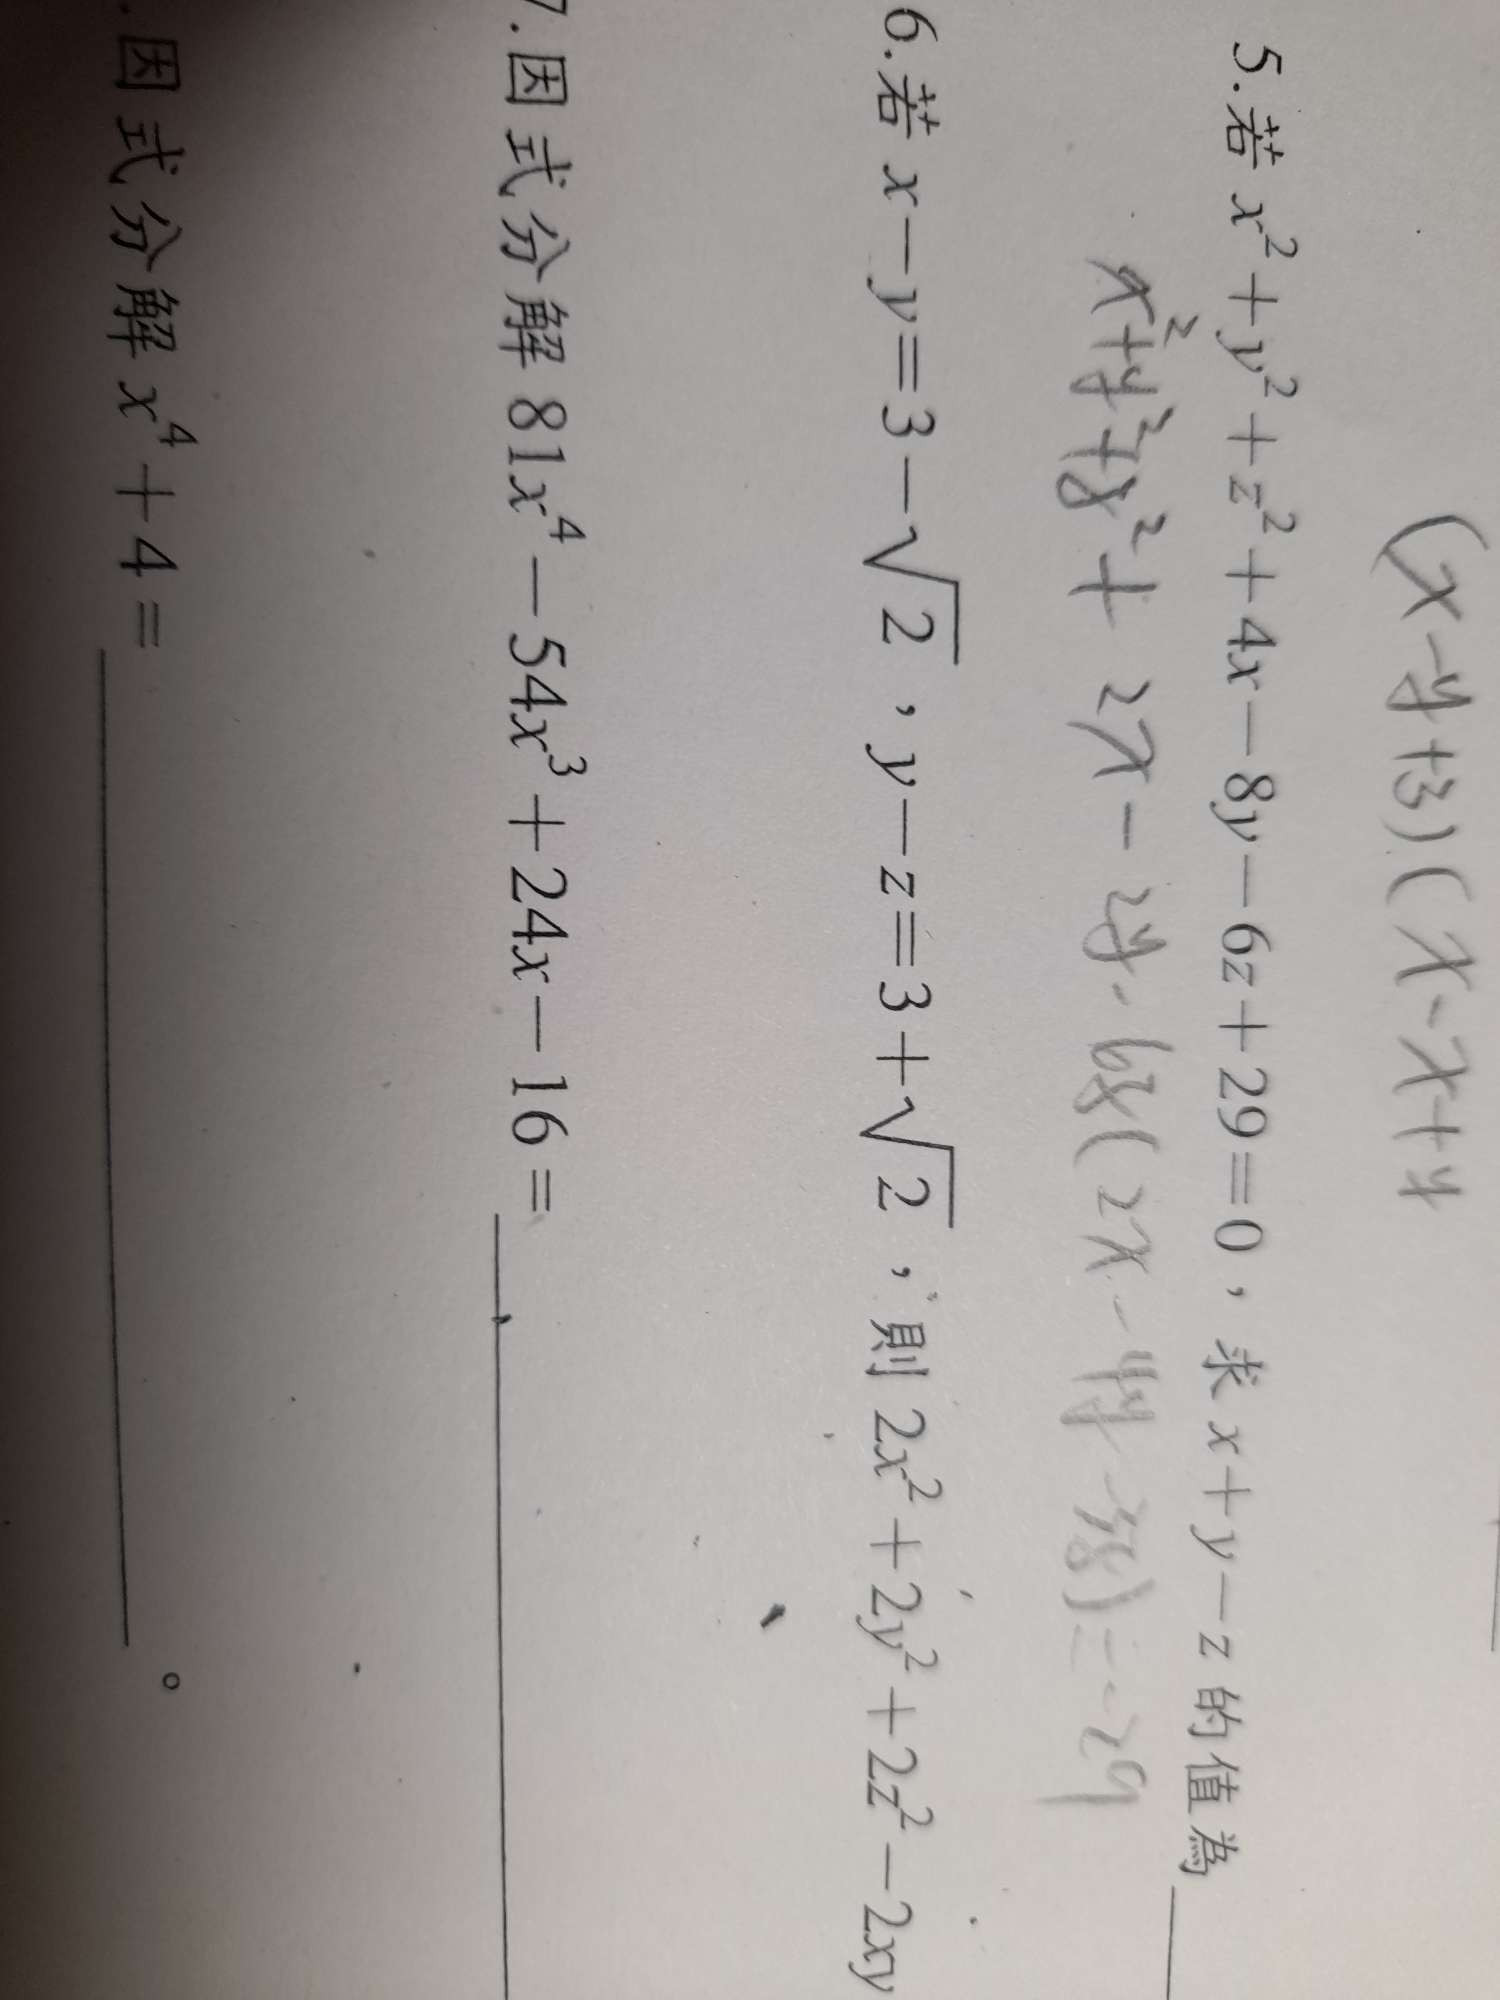 (x-y+3)(x-x+y
5.若 x²+y²+z²+4x-8y-6z+29=0，求 x+y-z 的值為
x²+y²+z²+2x-2y-6z(2x-4y-3z)=-29
6.若 x-y=3-√2，y-z=3+√2，則 2x²+2y²+2z²-2xy
7.因式分解 81x⁴-54x³+24x-16=
.因式分解 x⁴+4= 。